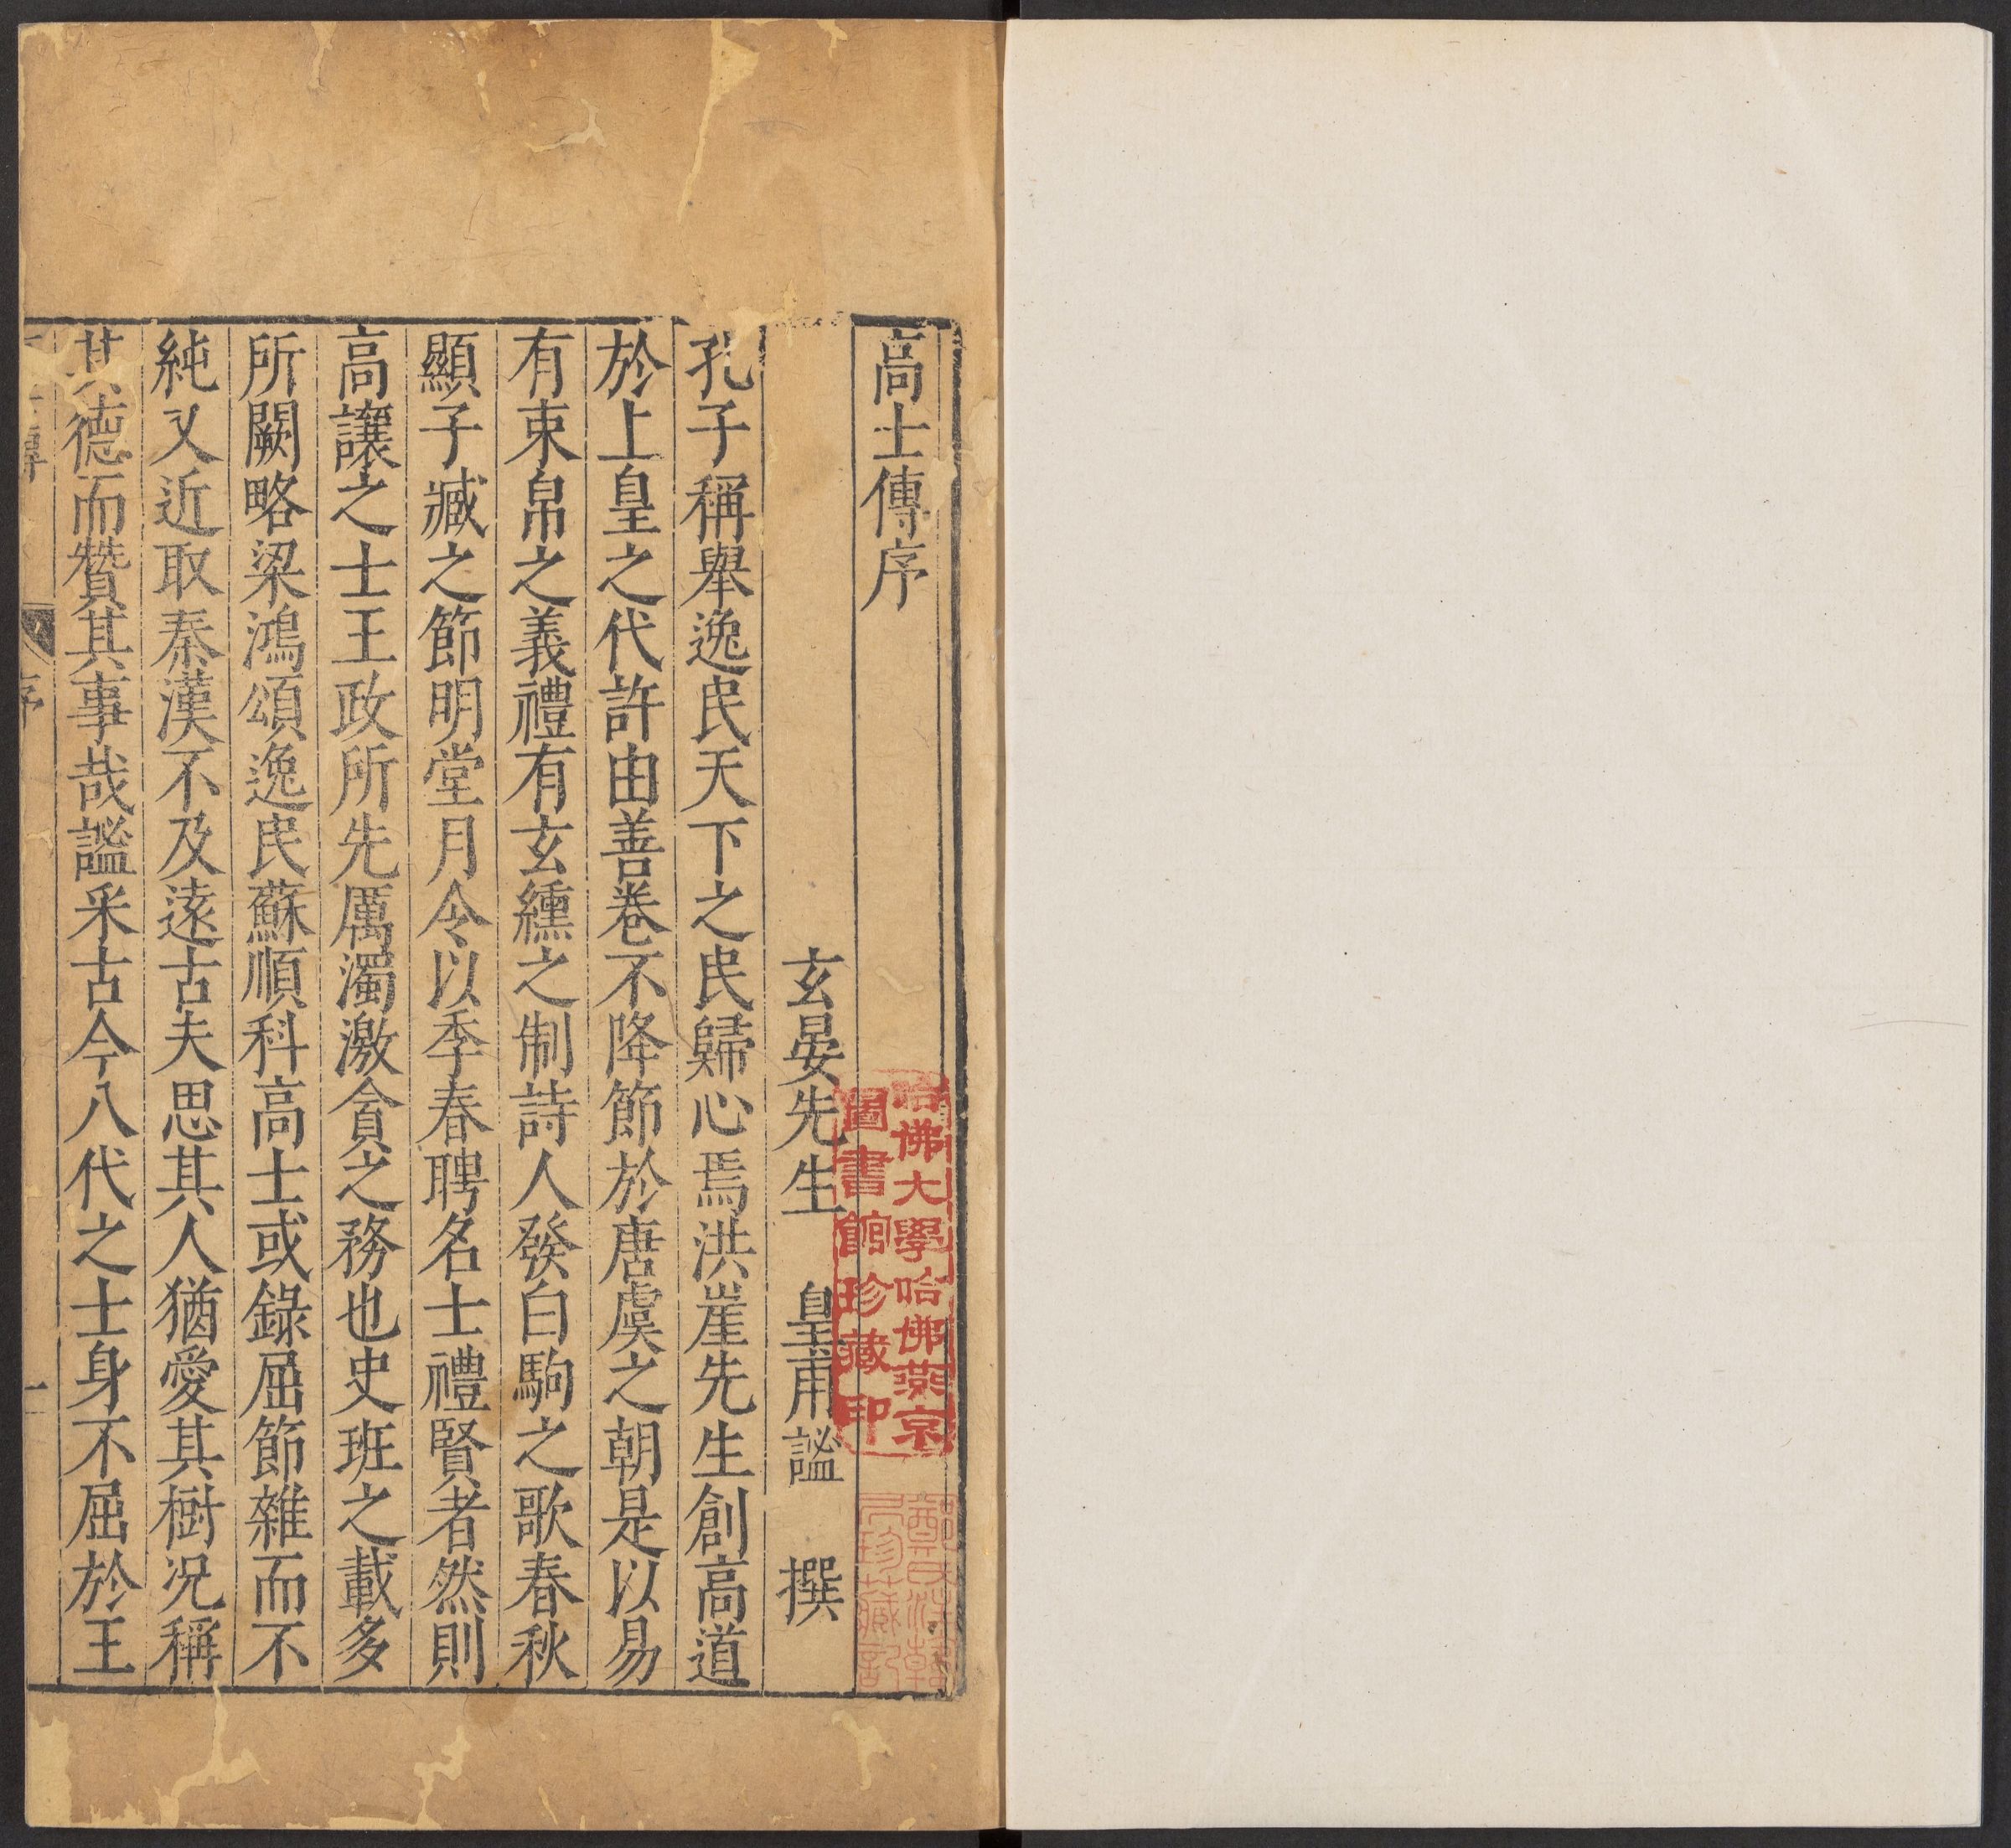 高士傳序
玄晏先生 皇甫謐 撰
孔子稱舉逸民天下之民歸心焉洪崖先生創高道
於上皇之代許由善卷不降節於唐虞之朝是以易
有束帛之義禮有玄纁之制詩人發白駒之歌春秋
顯子臧之節明堂月令以季春聘名士禮賢者然則
高讓之士王政所先厲濁激貪之務也史班之載多
所闕略梁鴻頌逸民蘇順科高士或錄屈節雜而不
純又近取秦漢不及遠古夫思其人猶愛其樹况稱
其德而贊其事哉謐采古今八代之士身不屈於王
傳 序 一
哈佛大學哈佛燕京
圖書館珍藏印
珍藏記